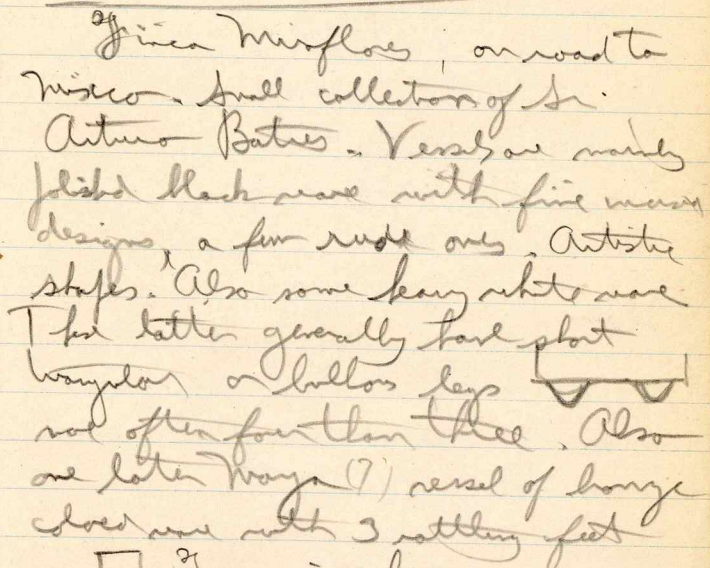 Finca Miraflores, on road to
Mixco. Small collection of Sr.
Arturo Batres. Vessels are mainly
polished black ware with fine incised
designs, a few rude ones. Artistic
shapes. Also some heavy white ware
The latter generally have short
triangular or bulbous legs
more often four than three. Also
one later Maya (?) vessel of
colored ware with 3 rattling feet